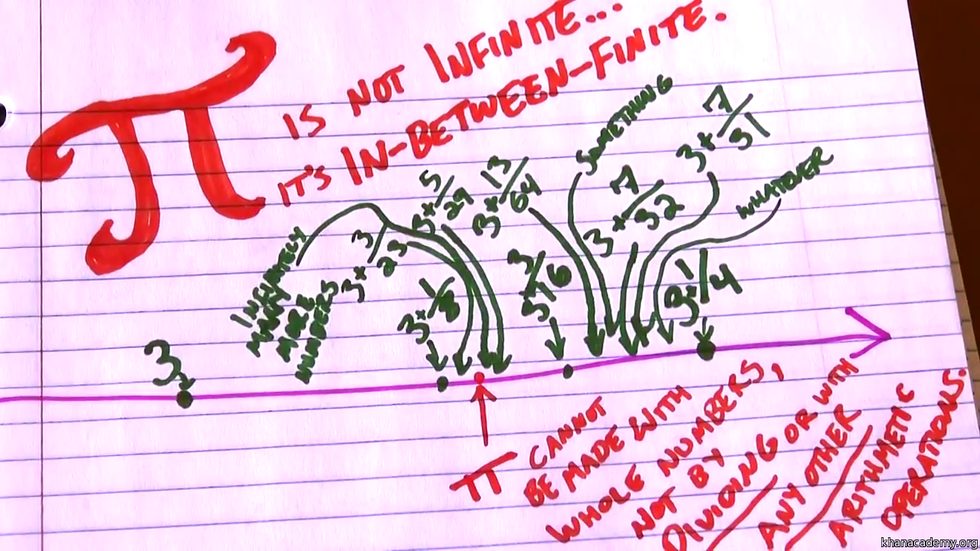 π IS NOT INFINITE...
IT'S IN-BETWEEN-FINITE.
SOMETHING
3+7/31
WHATEVER
3+5/29
3+13/64
3+7/32
3+3/23
INFINITELY
MANY
MORE
NUMBERS
3+1/8
3+3/16
3+1/4
3
π CANNOT
BE MADE WITH
WHOLE NUMBERS,
NOT BY
DIVIDING OR WITH
ANY OTHER
ARITHMETIC
OPERATIONS.
khanacademy.org